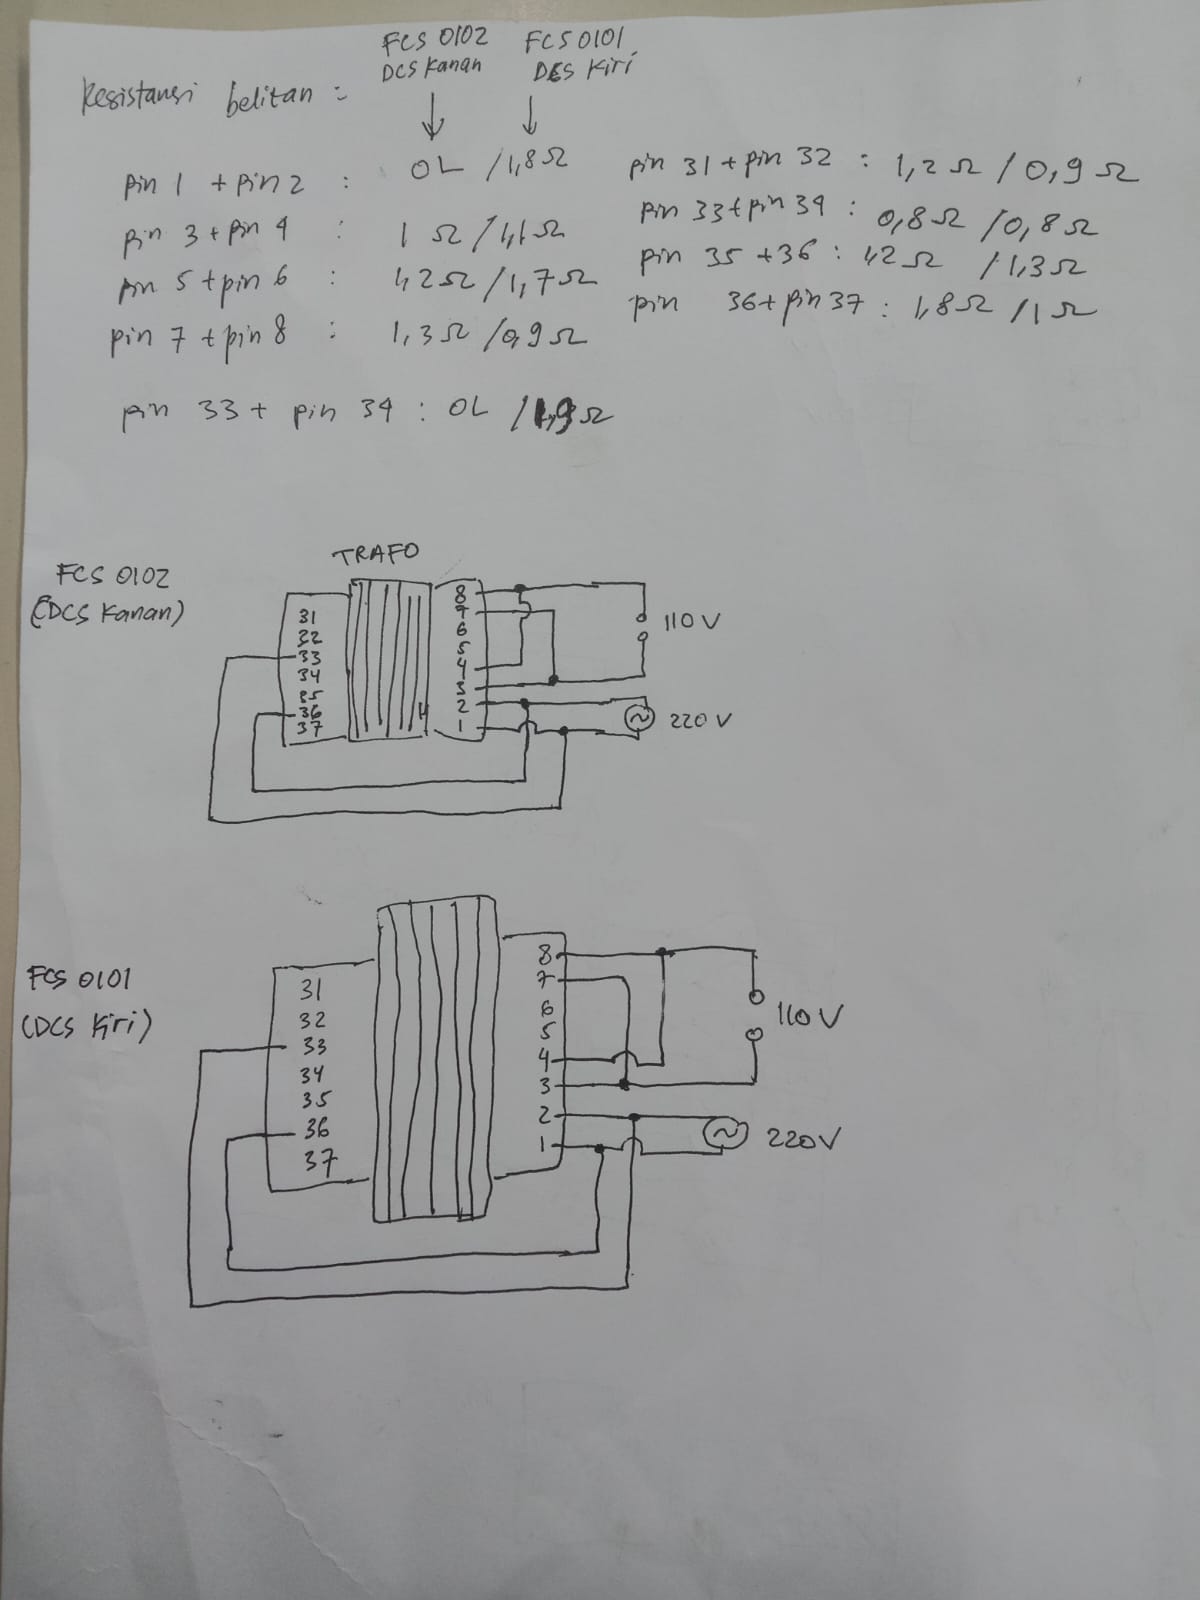 FCS 0102 FCS 0101
DCS Kanan DCS Kiri
Resistansi belitan :
pin 1 + pin 2 : OL / 1,8 Ω
pin 3 + pin 4 : 1 Ω / 1,1 Ω
pin 5 + pin 6 : 1,2 Ω / 1,7 Ω
pin 7 + pin 8 : 1,3 Ω / 0,9 Ω
pin 33 + pin 34 : OL / 1,9 Ω
pin 31 + pin 32 : 1,2 Ω / 0,9 Ω
pin 33 + pin 34 : 0,8 Ω / 0,8 Ω
pin 35 + 36 : 1,2 Ω / 1,3 Ω
pin 36 + pin 37 : 1,8 Ω / 1 Ω
TRAFO
FCS 0102
(DCS Kanan)
31
32
33
34
35
36
37
8
7
6
5
4
3
2
1
110 V
220 V
FCS 0101
(DCS Kiri)
31
32
33
34
35
36
37
8
7
6
5
4
3
2
1
110 V
220 V